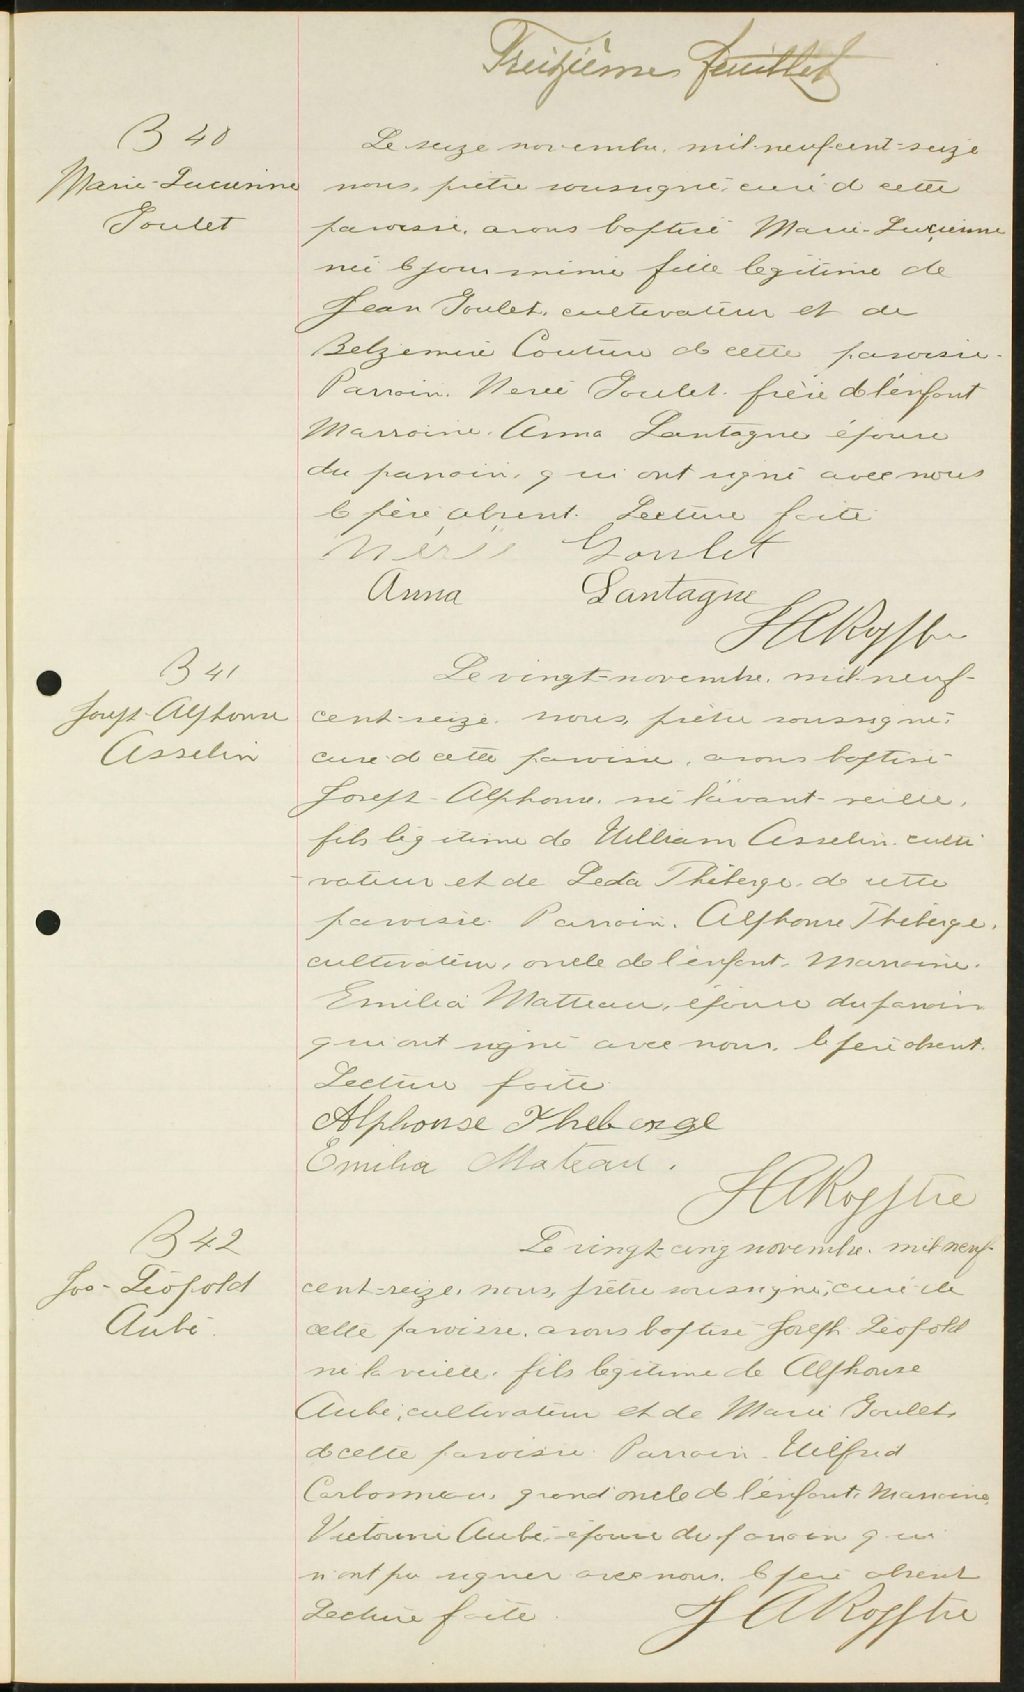 Treizième feuillet
B 40
Marie-Lucienne
Goulet
Le seize novembre mil-neuf-cent-seize
nous, prêtre soussigné, curé de cette
paroisse, avons baptisé Marie-Lucienne
née le jour même fille légitime de
Jean Goulet, cultivateur et de
Belzemire Couture de cette paroisse.
Parrain, Nerée Goulet, frère de l'enfant
Marraine, Anna Lantagne, épouse
du parrain, qui ont signé avec nous
le père absent. Lecture faite
Nérée Goulet
Anna Lantagne
B 41
Joseph-Alphonse
Asselin
Le vingt-novembre, mil-neuf-
cent-seize, nous, prêtre soussigné,
curé de cette paroisse, avons baptisé
Joseph-Alphonse, né l'avant-veille,
fils légitime de William Asselin, culti
-vateur et de Leda Théberge, de cette
paroisse. Parrain, Alphonse Théberge,
cultivateur, oncle de l'enfant, Marraine,
Emilia Matteau, épouse du parrain
qui ont signé avec nous, le père absent.
Lecture faite
Alphonse Theberge
Emilia Mateau.
B 42
Jos-Léopold
Aubé
Le vingt-cinq novembre, mil-neuf-
cent-seize, nous, prêtre soussigné, curé de
cette paroisse, avons baptisé Joseph Léopold
né la veille, fils légitime de Alphonse
Aubé, cultivateur et de Marie Goulet,
de cette paroisse. Parrain, Wilfrid
Carbonneau, grand oncle de l'enfant, Marraine,
Victorine Aubé, épouse du parrain qui
n'ont pu signer avec nous, le père absent
Lecture faite.